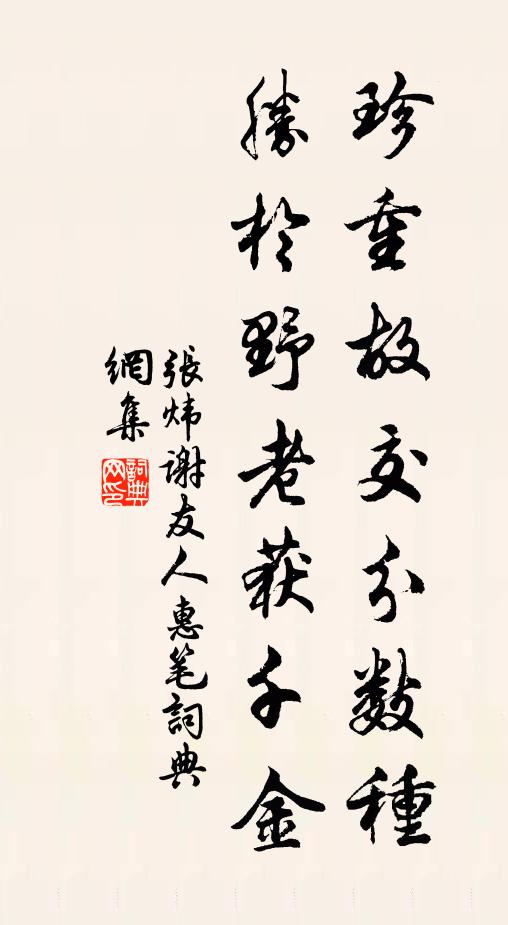 珍重故交分数種
勝於野老获千金
張炜谢友人惠笔詞典
網集
詞典
网印